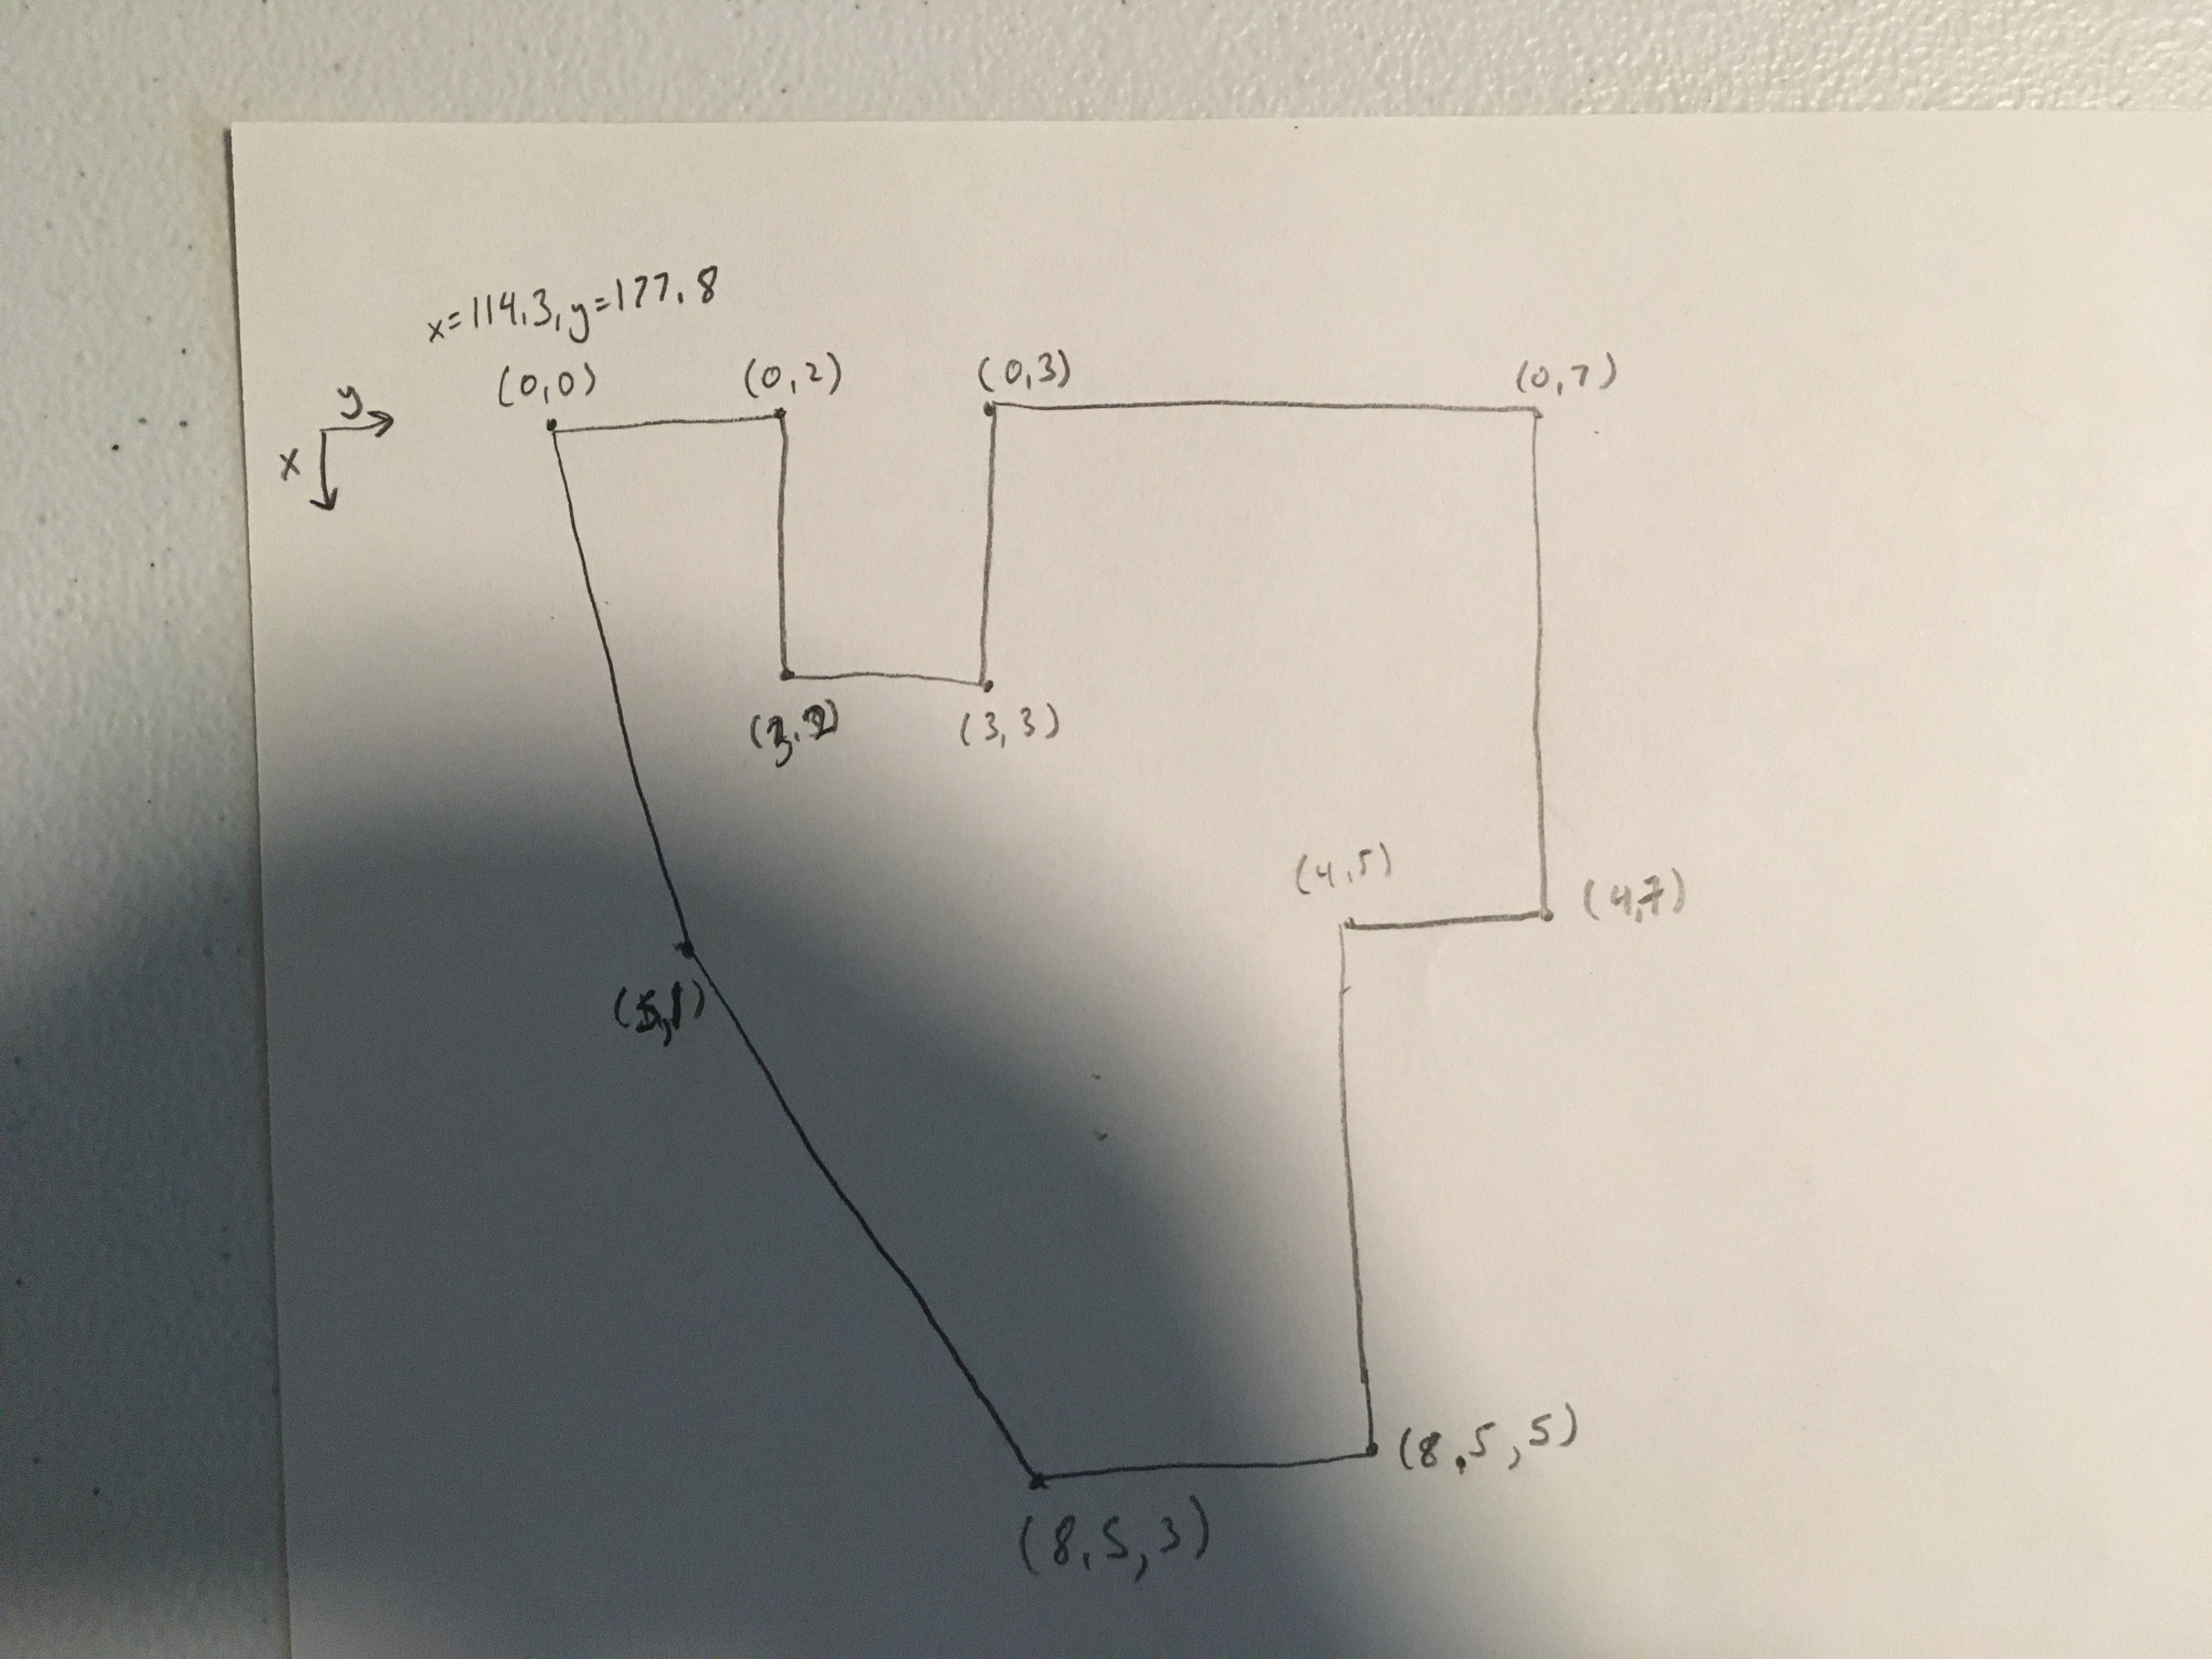 x=114.3, y=177.8
(0,0) (0,2) (0,3) (0,7)
y
x
(3,2) (3,3)
(4,5) (4,7)
(5,1)
(8.5,5)
(8.5,3)